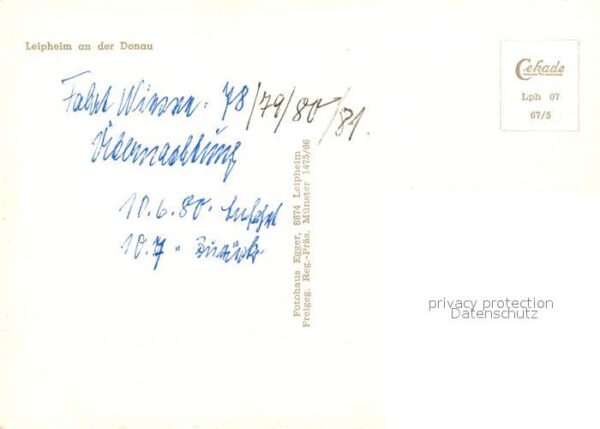 Leipheim an der Donau
Cekade
Lph 07
67/5
Fahrt Wiessee. 78/79/80/81.
Übernachtung
10.6.80. Anfahrt
10.7 " Zurück
Fotohaus Egger, 8874 Leipheim
Freigeg. Reg.-Präs. Münster 1475/66
privacy protection
Datenschutz